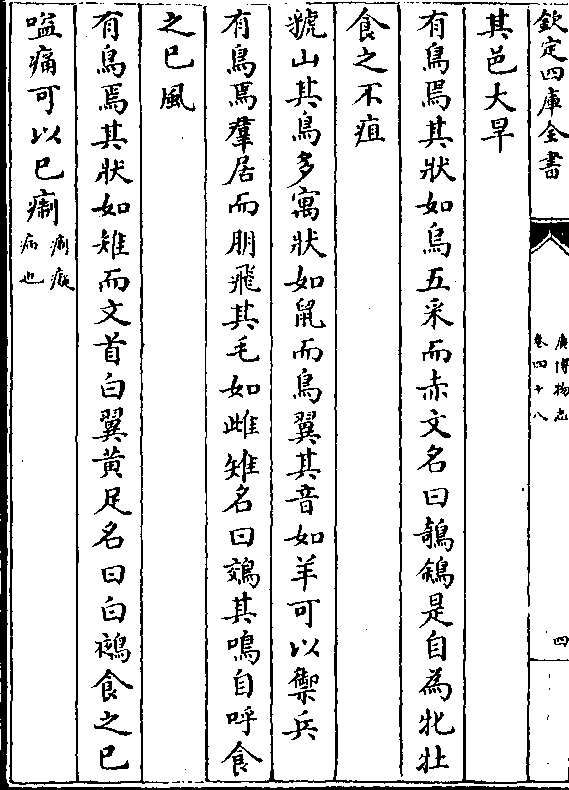 欽定四庫全書
廣博物志
卷四十八
四
其邑大旱
有鳥焉其狀如烏五采而赤文名曰鵸鵌是自為牝牡
食之不疽
虢山其鳥多寓狀如鼠而鳥翼其音如羊可以禦兵
有鳥焉羣居而朋飛其毛如雌雉名曰鵁其鳴自呼食
之已風
有鳥焉其狀如雉而文首白翼黃足名曰白鵺食之已
嗌痛可以已痸
痸癡
病也